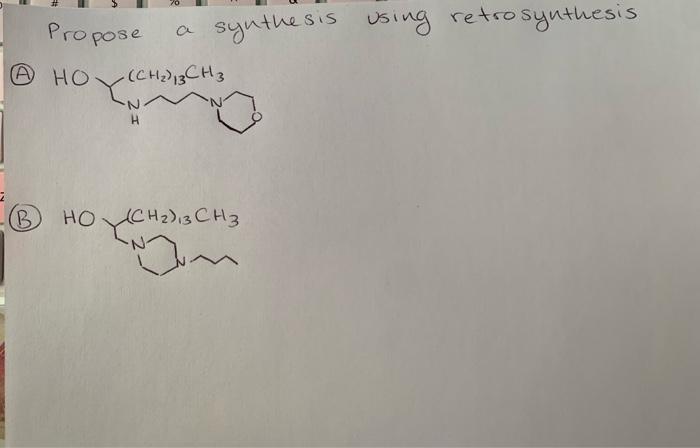 Propose a synthesis using retrosynthesis
A HO (CH2)13CH3
N N
H O
B HO (CH2)13CH3
N
N